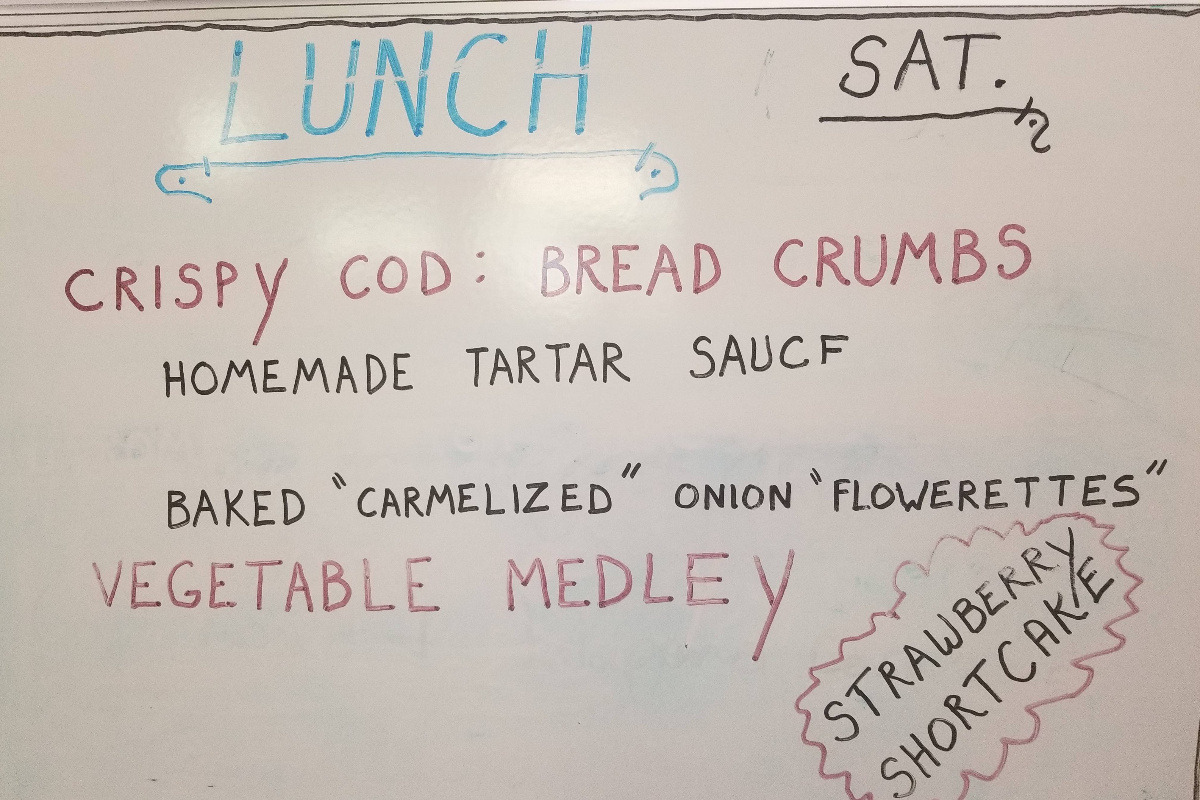 LUNCH
SAT.
CRISPY COD: BREAD CRUMBS
HOMEMADE TARTAR SAUCE
BAKED "CARMELIZED" ONION "FLOWERETTES"
VEGETABLE MEDLEY
STRAWBERRY
SHORTCAKE